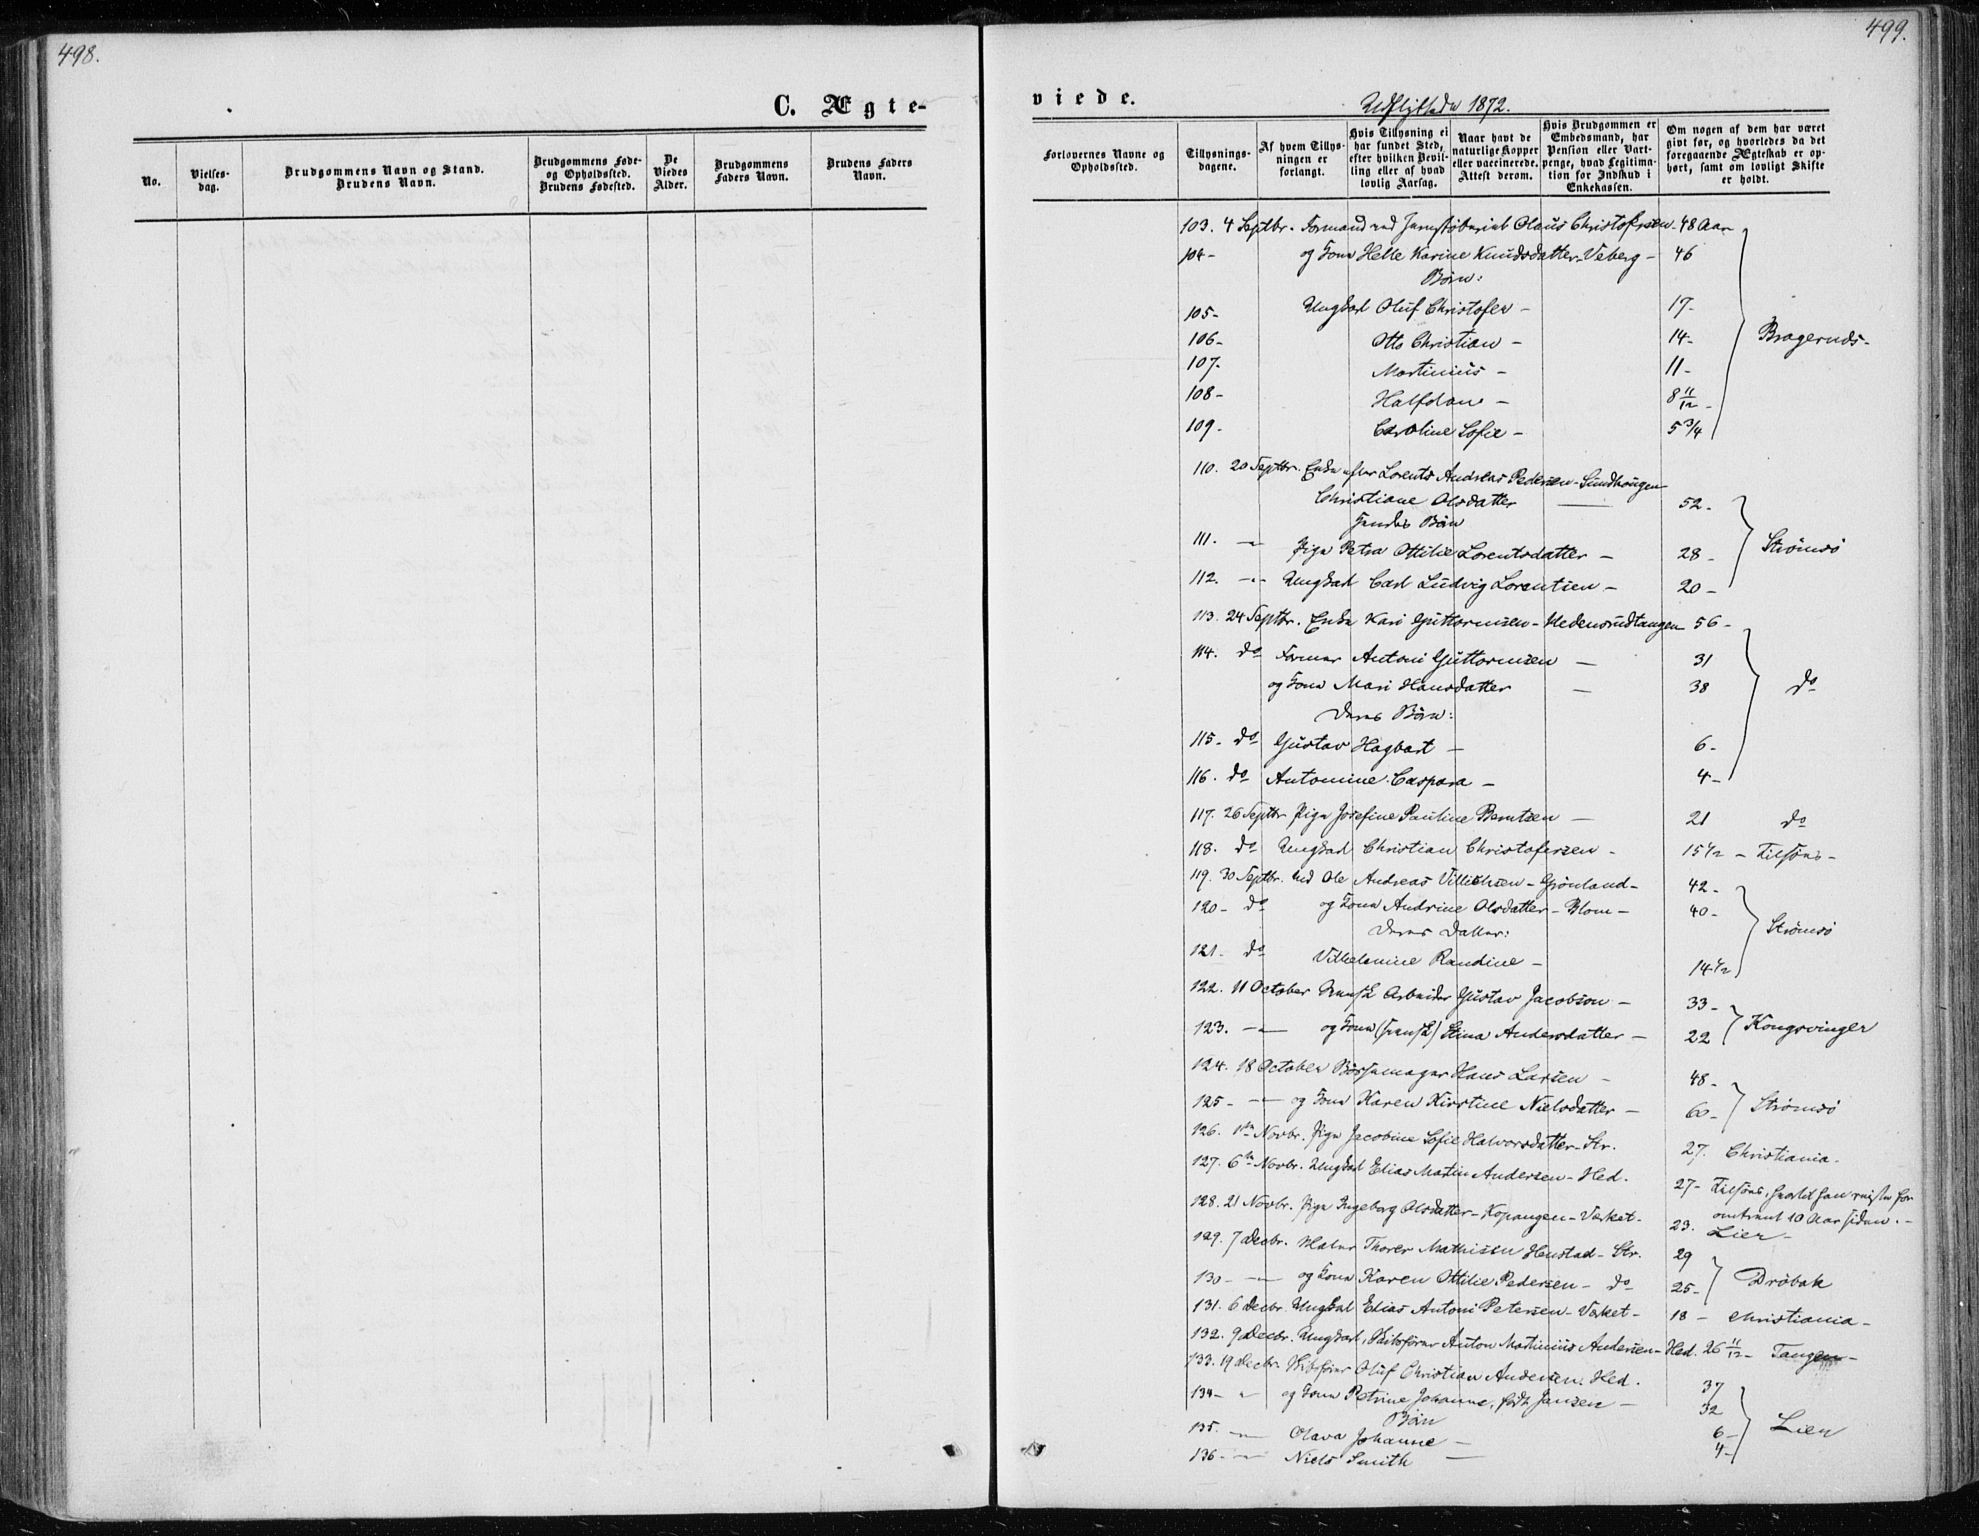 498.
C. Ægte-
No.
Vielses-
dag.
Brudgommens Navn og Stand.
Brudens Navn.
Brudgommens Føde-
og Opholdssted.
Brudens Fødested.
De
Viedes
Alder.
Brudgommens
Faders Navn.
Brudens Faders
Navn.
499.
viede.
Udflyttede 1872.
Forlovernes Navne og
Opholdssted.
Tillysnings-
dagene.
Af hvem Tillys-
ningen er
forlangt.
Hvis Tillysning ei
har fundet Sted,
efter hvilken Bevil-
ling eller af hvad
lovlig Aarsag.
Naar havt de
naturlige Kopper
eller vaccinerede.
Attest derom.
Hvis Brudgommen er
Embedsmand, har
Pension eller Vart-
penge, hvad Legitima-
tion for Indskud i
Enkekassen.
Om nogen af dem har været
givt før, og hvorledes da det
foregaaende Ægteskab er op-
hørt, samt om lovligt Skifte
er holdt.
103. 4 Septbr. Formand ved Jernstøberiet Olaus Christofersen - 48 Aar
104 - og Kone Helle Karine Knudsdatter Veberg - 46
Børn:
105 - Ungkarl Oluf Christofer - 17 -
106 - Otto Christian - 14 - Bragernæs -
107. Martinius - 11 -
108 - Halfdan - 8 11/12 -
109 - Caroline Sofie - 5 3/4
110. 20 Septbr. Enke efter Lorents Andreas Pedersen - Sundhaugen
Christiane Olsdatter 52 -
hendes Børn
111. - Pige Petra Ottilie Lorentsdatter - 28 - Strømsö
112. - Ungkarl Carl Ludvig Lorentsen - 20 -
113. 24 Septbr. Enke Kari Guttormsen - Hedensrudtangen 56 -
114. do Former Antoni Guttormsen - 31
og Kone Mari Hansdatter - 38 do
Deres Børn:
115. do Gustav Hagbart - 6 -
116. do Antomine Caspara - 4 -
117. 26 Septbr Pige Josefine Pauline Berntsen - 21 do
118. do Ungkarl Christian Christofersen - 15 1/2 - Tilsöes -
119. 30 Septbr. Ole Andreas Villiehsen - Grønland - 42 -
120 - do og Kone Andrine Olsdatter - Blom - 40 -
Deres Datter: Strømsö
121. do Vilhelmine Randine - 14 1/2
122. 11 October Svensk Arbeider Gustav Jacobson - 33 -
123. - og Kone (svensk) Stina Andersdatter - 22 Kongsvinger
124. 18 October Børsemager Hans Larsen - 48 -
125 - og Kone Karen Kirstine Nielsdatter - 60 - Strømsö
126. 1ste Novbr. Pige Jacobine Sofie Halvorsdatter - Str. 27. Christiania.
127. 6te Novbr. Ungkarl Elias Martin Andersen - Hed. 27 - Tilsöes, hvortil han reiste for
omtrent 10 Aar siden. -
128. 21 Novbr. Pige Ingeborg Olsdatter - Kopangen - Verket - 23. Lier -
129. 7 Decbr. Maler Thorer Mathisen Henstad - Str. 29
130 - og Kone Karen Ottilie Pedersen - do 25 - Drøbak
131. 6 Decbr. Ungkarl Elias Antoni Petersen - Verket - 18 - Christiania -
132. 9 Decbr. Ungkarl, Skibsfører Anton Martinius Andersen - Hed. 26 11/12 - Tangen -
133. 19 Decbr. Skibsfører Oluf Christian Andersen. Hed. 37
134 - og Kone Petrine Johanne, født Jansen - 32
Børn Lier
135. Olava Johanne - 6 -
136 - Niels Smith - 4 -